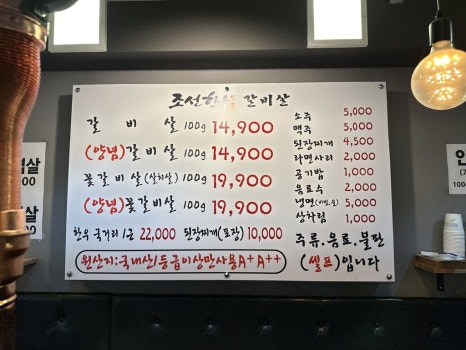 조선한우 갈비살
갈비살 100g 14,900
(양념)갈비살 100g 14,900
꽃갈비살(살치살) 100g 19,900
(양념)꽃갈비살 100g 19,900
한우 국거리 1근 22,000 된장찌개(포장) 10,000
원산지:국내산1등급이상만사용A+A++
소주 5,000
맥주 5,000
된장찌개 4,500
라면사리 2,000
공기밥 1,000
음료수 2,000
냉면 5,000
상차림 1,000
주류.음료.불판
(셀프)입니다